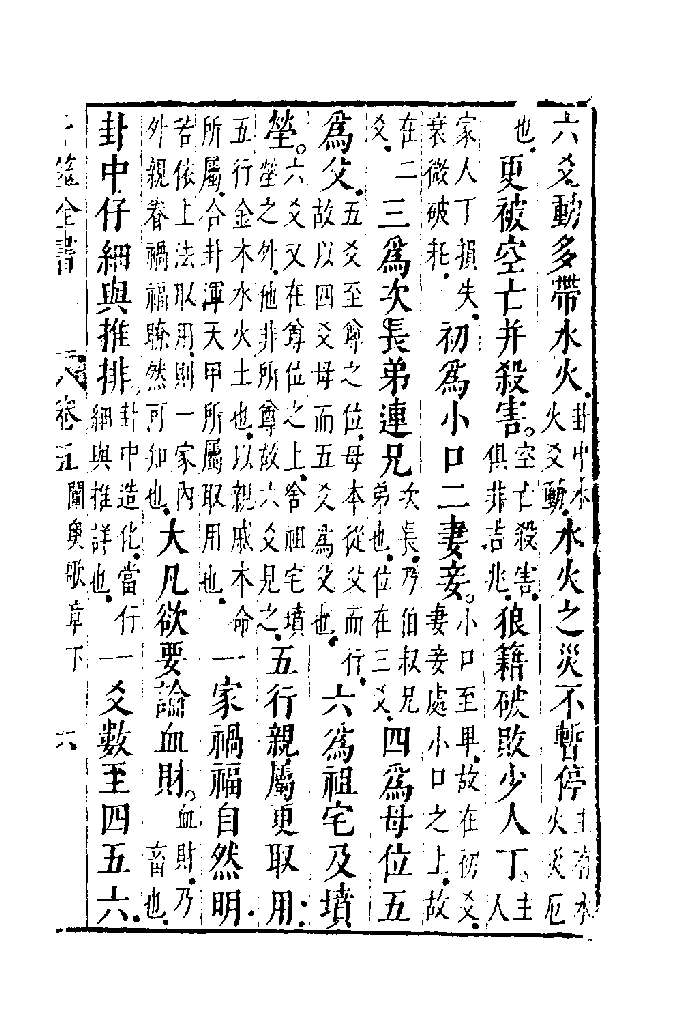 六爻動多帶水火卦中水火爻動水火之災不暫停主有水火災厄
也更被空亡并殺害空亡殺害俱非吉兆狼籍破敗少人丁主人
家人丁損失衰微破耗初爲小口二妻妾小口至卑故在初爻妻妾處小口之上故
在二爻三爲次長弟連兄次長乃伯叔兄弟也位在三爻四爲母位五
爲父五爻至尊之位母本從父而行故以四爻母而五爻爲父也六爲祖宅及墳
塋六爻又在尊位之上舍祖宅墳塋之外他非所尊故六爻見之五行親屬更取用
五行金木水火土也以親戚本命所屬合卦渾天甲所屬取用也一家禍福自然明
若依上法取用則一家內外親眷禍福瞭然可知也大凡欲要論血財血財乃畜也
卦中仔細與推排卦中造化當行細與推詳也一爻數至四五六
卜筮全書 卷五 闡奧歌章下 六